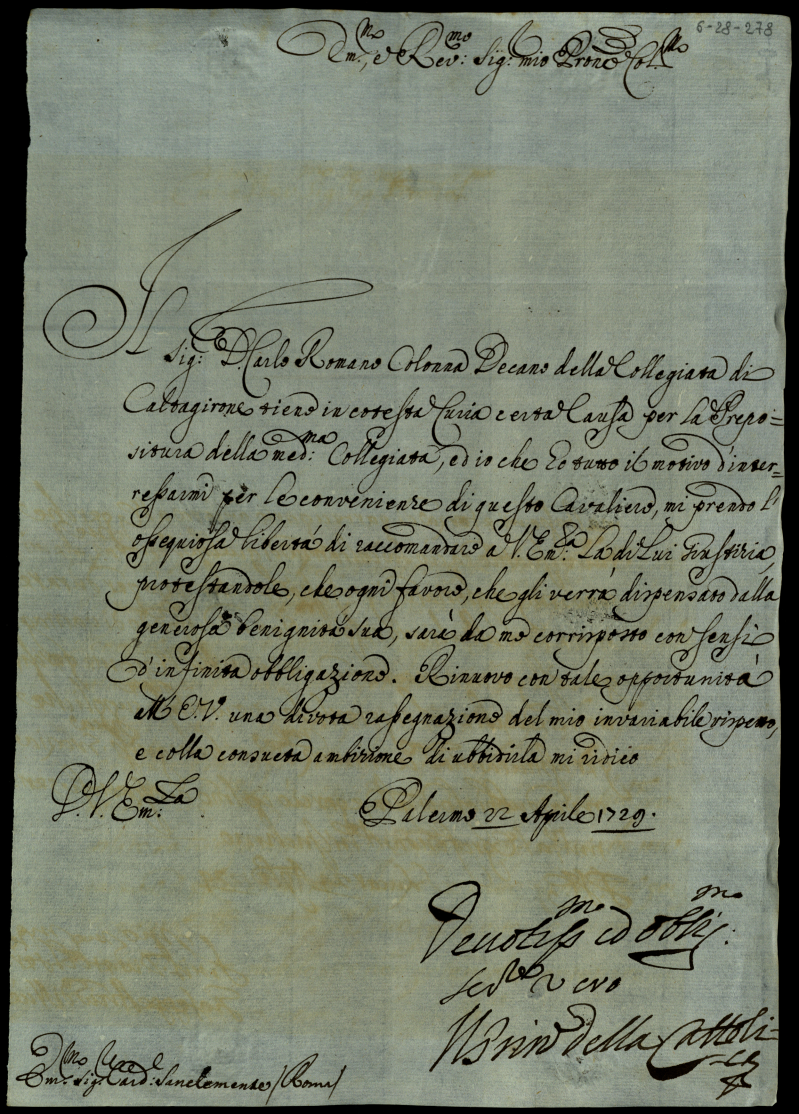 6-28-278
Em.mo, e Rev:mo Sig: mio Prone Col.mo
Il
Sig: D. Carlo Romano Colonna Decano della Collegiata di
Caltagirone tiene in cotesta Curia certa Causa per la Prepo=
situra della med:ma Collegiata, ed io che ho tutto il motivo d'inter=
ressarmi per le convenienze di questo Cavaliere, mi prendo l'
ossequiosa libertá di raccomandare a V. Em:za La di Lui Giustizia,
protestandole, che ogni favore, che gli verrà dispensato dalla
generosa benignita sua, sarà da me corrisposto con sensi
d'infinita obbligazione. Rinuovo con tale opportunitá
all'E.V. una divota rassegnazione del mio invariabile rispetto,
e colla consueta ambizione di ubbidirla mi ridico
D.V. Em:za
Palermo 22 Aprile 1729.
Devotiss.mo ed obb.mo:
Ser.re vero
Il Prin.e della Cattoli=
ca
Em.mo Sig: Card:le Sanclemente (Roma)